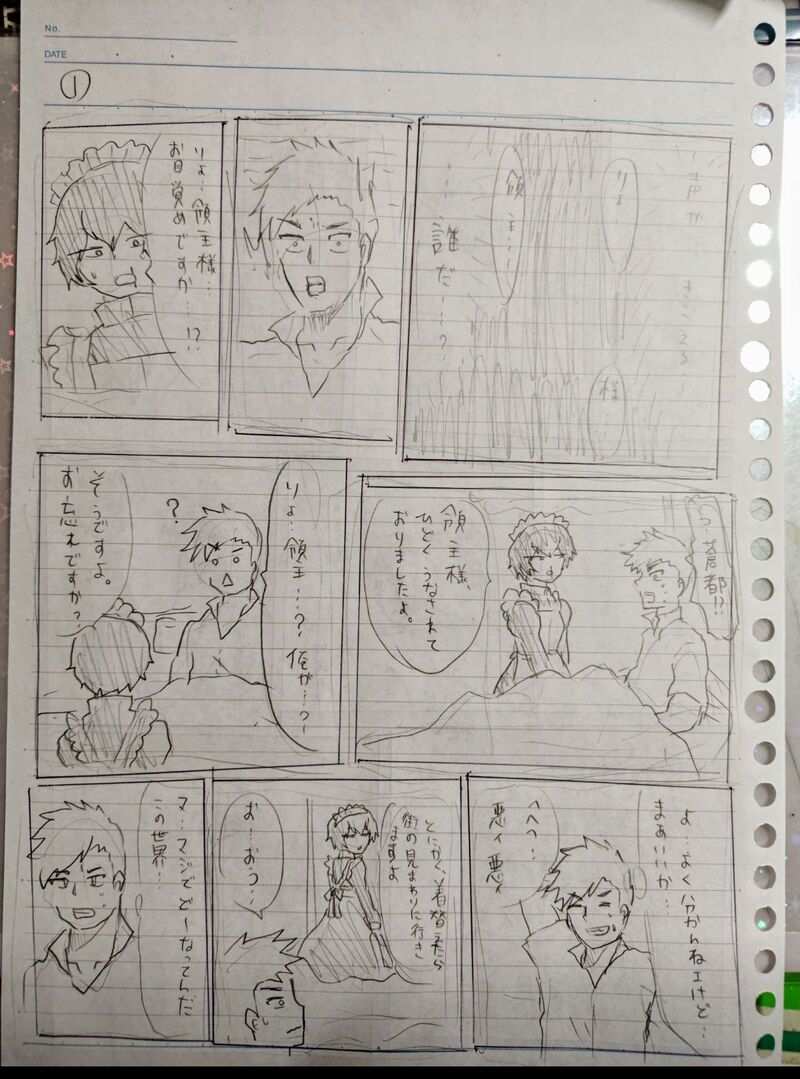 No.
DATE
①
声が…
きこえる…
りょ…
領
主…
様…
…誰だ…?
りょ…領主様…
お目覚めですか…!?
蒼都!?
領主様、
ひどくうなされて
おりましたよ。
りょ…領主…?俺が…?
?
そうですよ。
お忘れですか?
よ…よく分かんねエけど…
まぁいいか…
へへっ…
悪ィ悪ィ
とにかく、着替えたら
街の見まわりに行き
ますよ
お…おう…
マ…マジでどーなってんだ
この世界…